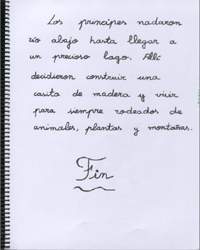 Los príncipes nadaron
río abajo hasta llegar a
un precioso lago. Allí
decidieron construir una
casita de madera y vivir
para siempre rodeados de
animales, plantas y montañas.
Fin